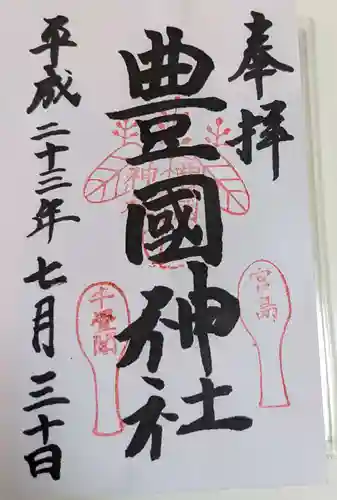 奉拝
豊國神社
平成二十三年七月三十日
宮島
千畳閣